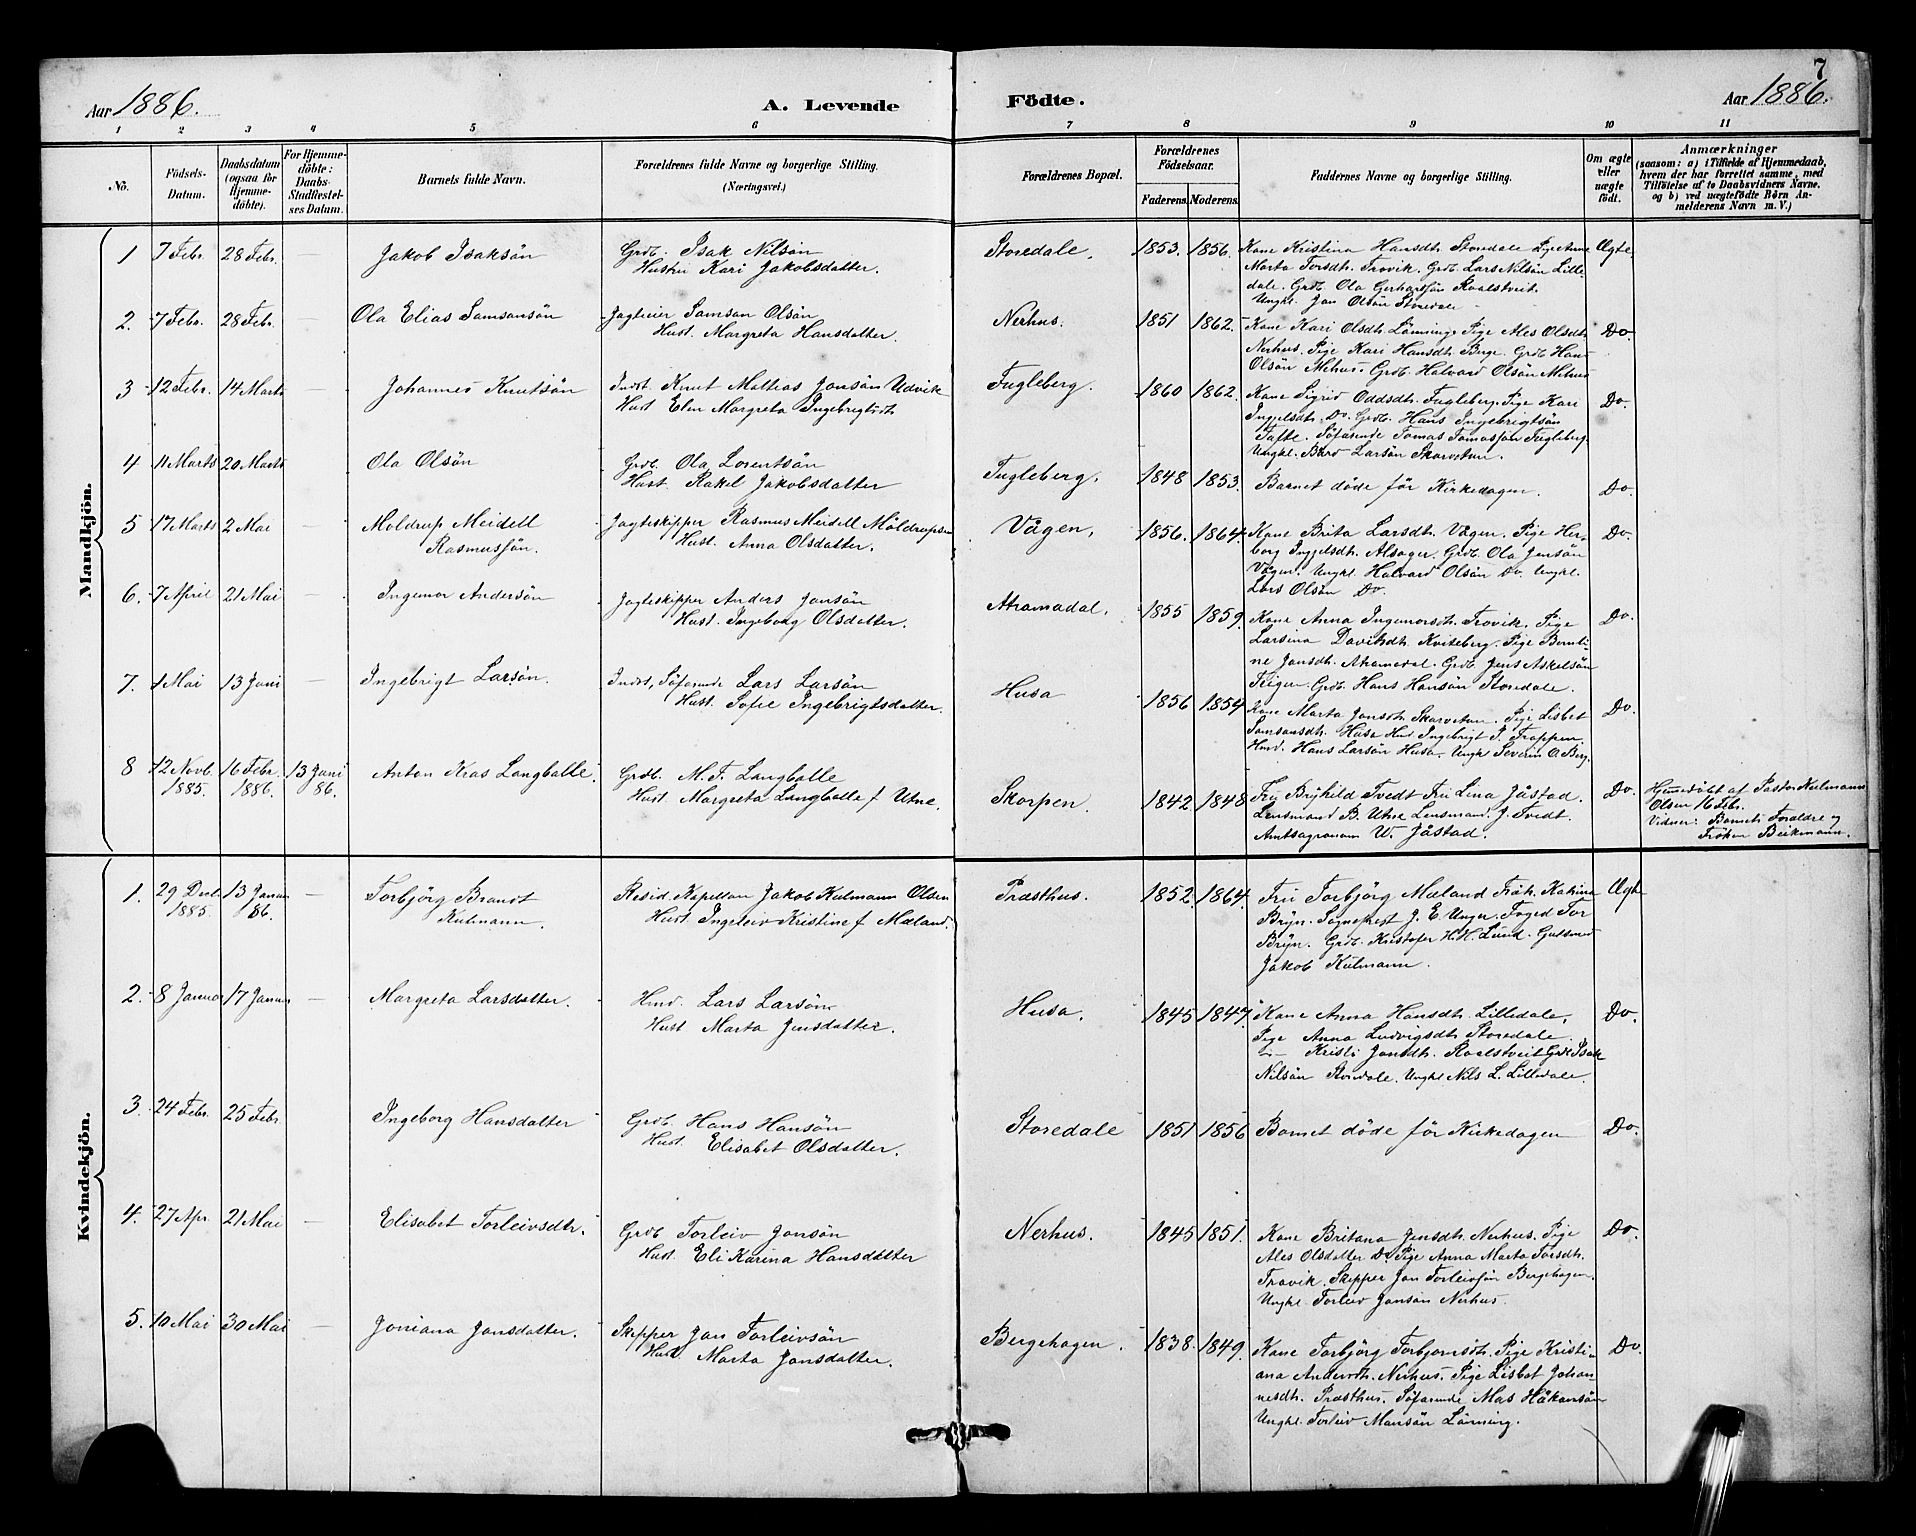 7
Aar 1886. A. Levende Födte. Aar 1886.
1 2 3 4 5 6 7 8 9 10 11
No.
Födsels-Datum.
Daabsdatum (ogsaa for Hjemme-döbte).
For Hjemme-döbte: Daabs-Stadfæstel-ses Datum.
Barnets fulde Navn.
Forældrenes fulde Navne og borgerlige Stilling. (Næringsvei.)
Forældrenes Bopæl.
Forældrenes Födselsaar.
Faderens. Moderens.
Faddernes Navne og borgerlige Stilling.
Om ægte eller uægte födt.
Anmærkninger
(saasom: a) i Tilfælde af Hjemmedaab,
hvem der har forrettet samme, med
Tilföielse af to Daabsvidners Navne,
og b) ved uægtefödte Börn An-
melderens Navn m. V.)
Mandkjön.
1 7 Febr. 28 Febr. — Jakob Isaksön Grdb. Isak Nilsön
Hustru Kari Jakobsdatter. Storedale. 1853. 1856. Kone Kristina Hansdtr. Storedale Pige Anne
Marta Torsdtr. Trovik. Grdb. Lars Nilsön Lille
dale. Grdb. Ola Gerhartsön Roaldstveit.
Ungkl. Jon Olsön Storedale Ægte
2. 7 Febr. 28 Febr. — Ola Elias Samsonsön Jagteier Samson Olsön
Hust. Margreta Hansdatter. Nerhus. 1851 1862. Kone Kari Olsdtr. Lönning. Pige Ales Olsdtr.
Nerhus. Pige Kari Hansdtr. Berge. Grdb. Hans
Olsön Mehus. Grdb. Halvard Olsön Mehus Do.
3 12 Febr. 14 Marts — Johannes Knutsön Indst. Knut Mathias Jonsön Udvik
Hust Elen Margreta Ingebrigtsdtr. Fugleberg. 1860 1862. Kone Sigrid Oddsdtr. Fugleberg. Pige Kari
Ingjelsdtr. Do. Grdb. Hans Ingebrigtsön
Tofte. Söfarende Tomas Tomassön Fugleberg.
Ungkl. Bård Larsön Skorvetun. Do.
4 11 Marts 20 Marts — Ola Olsön Grdb. Ola Lorentsön
Hust. Rakel Jakobsdatter Fugleberg. 1848 1853. Barnet döde för Kirkedagen. Do.
5 17 Marts 2 Mai — Moldrup Meidell
Rasmussön. Jagteskipper Rasmus Meidell Möldrupsen
Hust. Anna Olsdatter. Vågen. 1856. 1864. Kone Brita Larsdtr. Vågen. Pige Her-
borg Ingjelsdtr. Alsager. Grdb. Ola Jensön
Vågen. Ungkl. Halvard Olsön Do. Ungkl.
Lars Olsön Do. Do.
6. 7 April 21 Mai — Ingemor Andersön Jagteskipper Anders Jonsön
Hust. Ingeborg Olsdatter. Atramadal. 1855 1859. Kone Anna Ingemorsdtr. Trovik. Pige
Larsina Davitsdtr. Kviteberg. Pige Bomli-
ne Jonsdtr. Atramadal. Grdb. Jens Askelsön
Teigen. Grdb. Hans Hansön Storedale. Do.
7. 1 Mai 13 Juni — Ingebrigt Larsön. Indst, Söfarende Lars Larsön
Hust. Sofie Ingebrigtsdatter. Husa 1856 1854 Kone Marta Jonsdtr. Skorvetun. Pige Lisbet
Samsonsdtr. Husa Hmd Ingebrigt P. Troppen
Hmd. Hans Larsön Husa. Ungk Severin O. Berg. Do.
8 12 Novb. 1885. 16 Febr. 1886. 13 Juni 86. Anton Kras Langballe. Grdb. M. F. Langballe
Hust. Margreta Langballe f Utne. Skorpen. 1842 1848 Fru Brynhild Tvedt Fru Lina Jåstad.
Lensmand B. Utne Lensmand. J. Tvedt.
Amtsagronom W. Jåstad. Do. Hjemedöbt af Pastor Kulmann
Olsen 16 Febr.
Vidner: Barnets Foraldre og
Fröken Beckmann.
Kvindekjön.
1. 29 Decb 1885. 13 Januar 86. — Torbjörg Brandt
Kulmann. Resid. Kapellan Jakob Kulmann Olsen
Hust. Ingeleiv Kristine f Mæland. Præsthus. 1852. 1864. Fru Torbjörg Mæland Frök. Katrina
Bryn. Sogneprest J. E. Unger. Foged Tor
Bryn. Grdb. Kristofer H. H. Lund. Guldsmed
Jakob Kulmann. Ægte
2. 8 Januar 17 Januar — Margreta Larsdatter. Hmd. Lars Larsön
Hust Marta Jensdatter. Husa. 1845 1847. Kone Anna Hansdtr. Lilledale.
Pige Anna Ludvigsdtr. Storedale.
— Kristi Jonsdtr. Roaldstveit Grdb Isak
Nilsön Storedale. Ungkl Nils L. Lilledale. Do.
3. 24 Febr. 25 Febr — Ingeborg Hansdatter Grdb. Hans Hansön
Hust. Elisabet Olsdatter. Storedale 1851 1856 Barnet döde för Kirkedagen Do.
4. 27 Apr. 21 Mai — Elisabet Torleivsdtr. Grdb Torleiv Jonsön
Hust. Eli Karina Hansdatter Nerhus. 1845 1851. Kone Britana Jensdtr. Nerhus. Pige
Ales Olsdatter Do Pige Anna Marta Torsdtr.
Trovik. Skipper Jon Torleivsön Bergehagen.
Ungkl. Torleiv Jonsön Nerhus. Do.
5. 10 Mai 30 Mai — Joniana Jonsdatter. Skipper Jon Torleivsön
Hust. Marta Jonsdatter. Bergehagen. 1838. 1849. Kone Torbjörg Torbjornsdtr. Pige Kristi-
ana Andersdtr. Nerhus. Pige Lisbet Johan-
nesdtr. Præsthus. Söfarende Mas Håkonsön
Ungkl. Torleiv Monsön Lönning. Do.